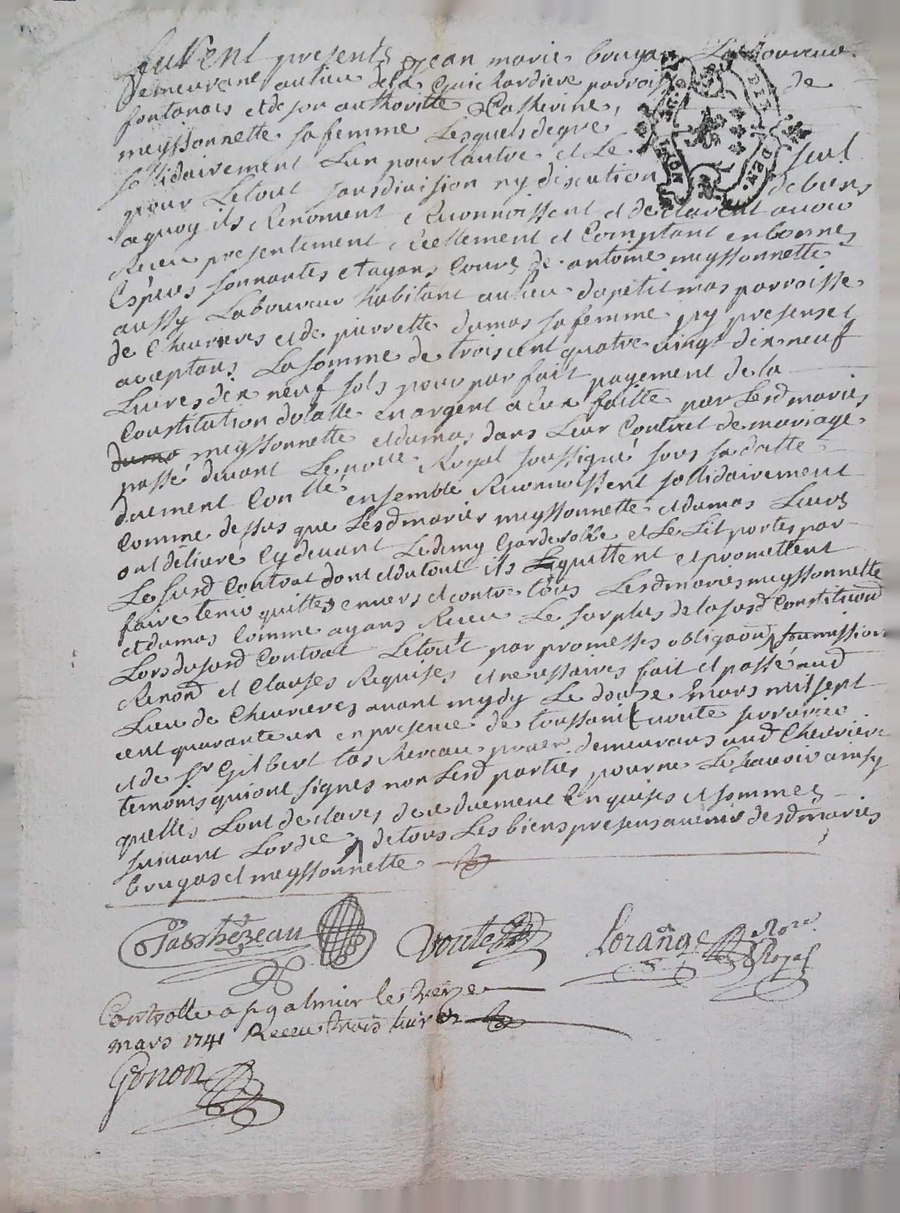 furent presents Jean marie brugas Laboureur
demeurant au lieu de la Guichardiere parroi de
fontanais et de son authoritté Catherine
meyssonnette sa femme Lesquels de gré
sollidairement L'un pour L'autre et Le seul
pour Letout sans division ny discution de biens
aquoy ils Renoncent Reconnoissent et declarent avoir
Receu presentement reellement et Comptant en bonnes
Espèces sonnantes et ayans Cours de antoine meyssonnette
aussy Laboureur habitant au lieu du petit mas parroisse
de Chevrieres et de pierrette dumas sa femme jcy presens et
aceptans La somme de trois cent quatre vingt dix neuf
Livres dix neuf sols pour par fait payement de la
Constitution dotalle en argent a eux faitte par Lesd maries
meyssonnette et dumas dans Leur Contract de mariage
passé devant Le notre Royal soussigné sous sa datte
duement Conllé ensemble Reconnoissent sollidairement
Comme dessus que Lesd maries meyssonnette et dumas Leurs
ont délivré Cy devant Le demy Garderobbe et Le Lit portes par
Le susd Contrat dont et du tout ils quittent et promettent
faire tenir quittes envers et contre tous Lesd maries meyssonnette
et dumas Comme ayans Receu Le surplus de la susd Constitution
Lors du susd Contrat Letout par promesses obligaons soumissions
Renond et Clauses Requises et necessaires fait et passé aud
Lieu de Chevrieres avant mydy Le douze mars mil sept
cent quarante un en presence de toussaint voute
et de Sr Gilbert tas Rezeau demeurans aud Chevriere
temoins qui ont signes non Lesd parties pour ne Le savoir ainsy
quelles L'ont declaré de ce duement Enquises et sommees
suivant Lordce de tous Les biens presens avenir desd maries
brugas et meyssonnette
Tashezeau voute Lorange Nore Royal
Controllé a St galmier le treze
mars 1741 Receu trois livres
Gonon